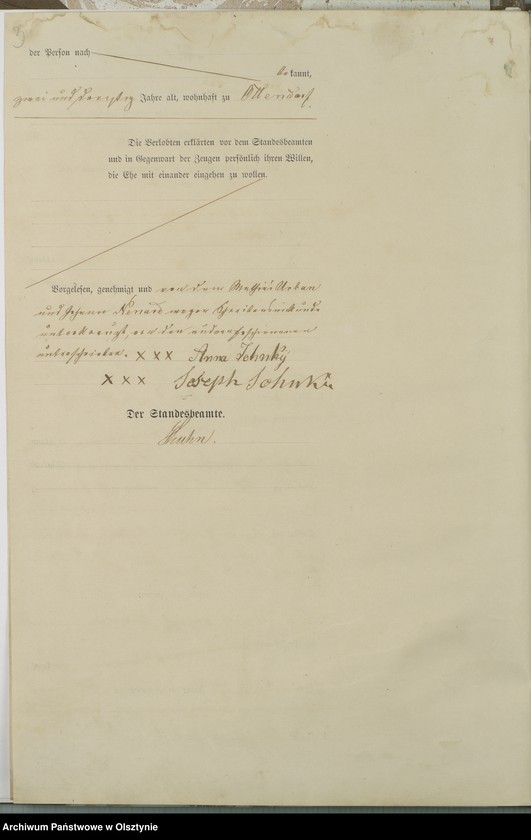 der Person nach
be kannt,
zwei und dreißig Jahre alt, wohnhaft zu Ottendorf.
Die Verlobten erklärten vor dem Standesbeamten
und in Gegenwart der Zeugen persönlich ihren Willen,
die Ehe mit einander eingehen zu wollen.
Vorgelesen, genehmigt und von dem Urban
und Johann wegen Schreibensunkunde
unterkreuzt, von den anderen Erschienenen
unterschrieben. XXX Anna
XXX Joseph
Der Standesbeamte.
Archiwum Państwowe w Olsztynie